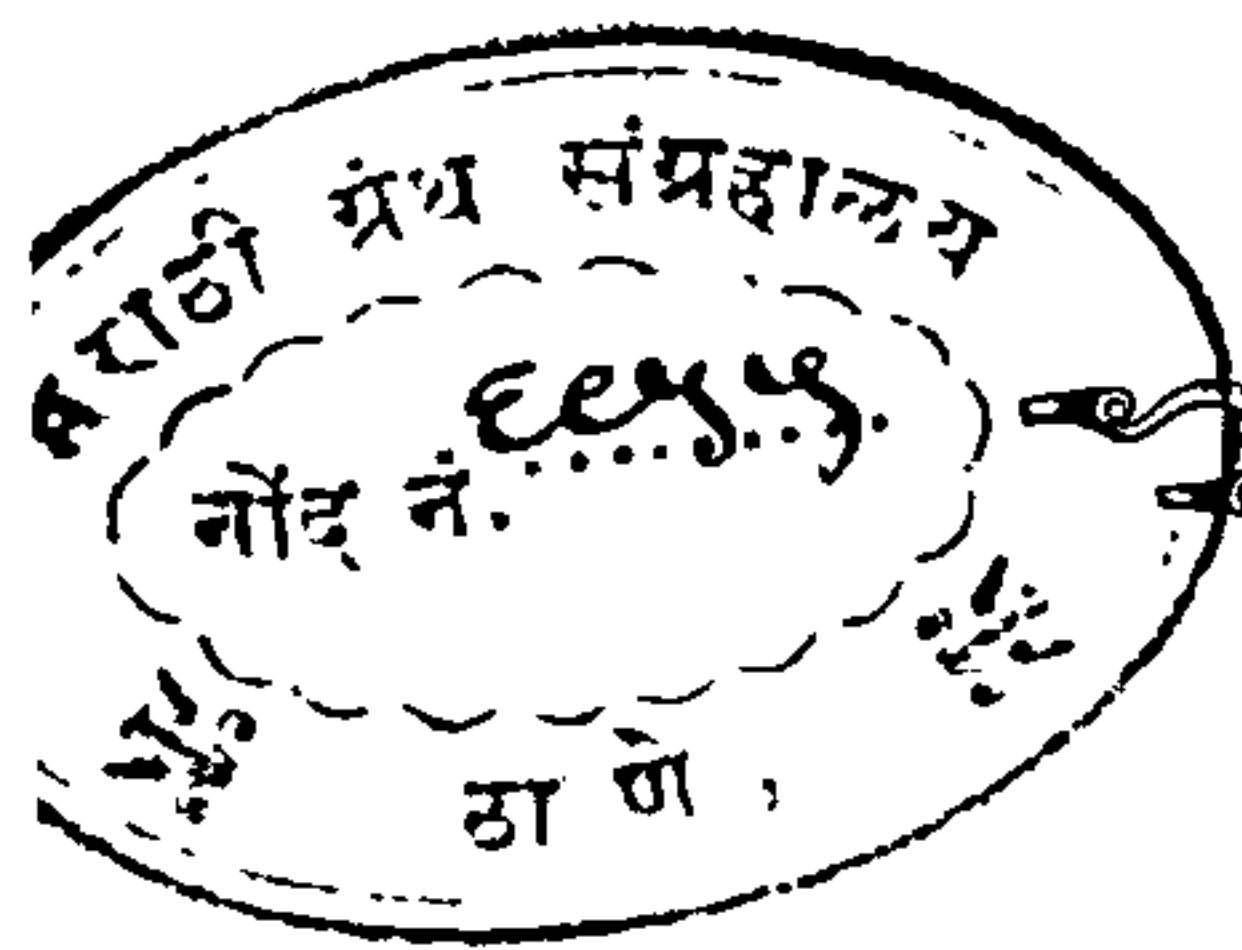 मराठी ग्रंथ संग्रहालय
नोंद नं.
ठाणे,